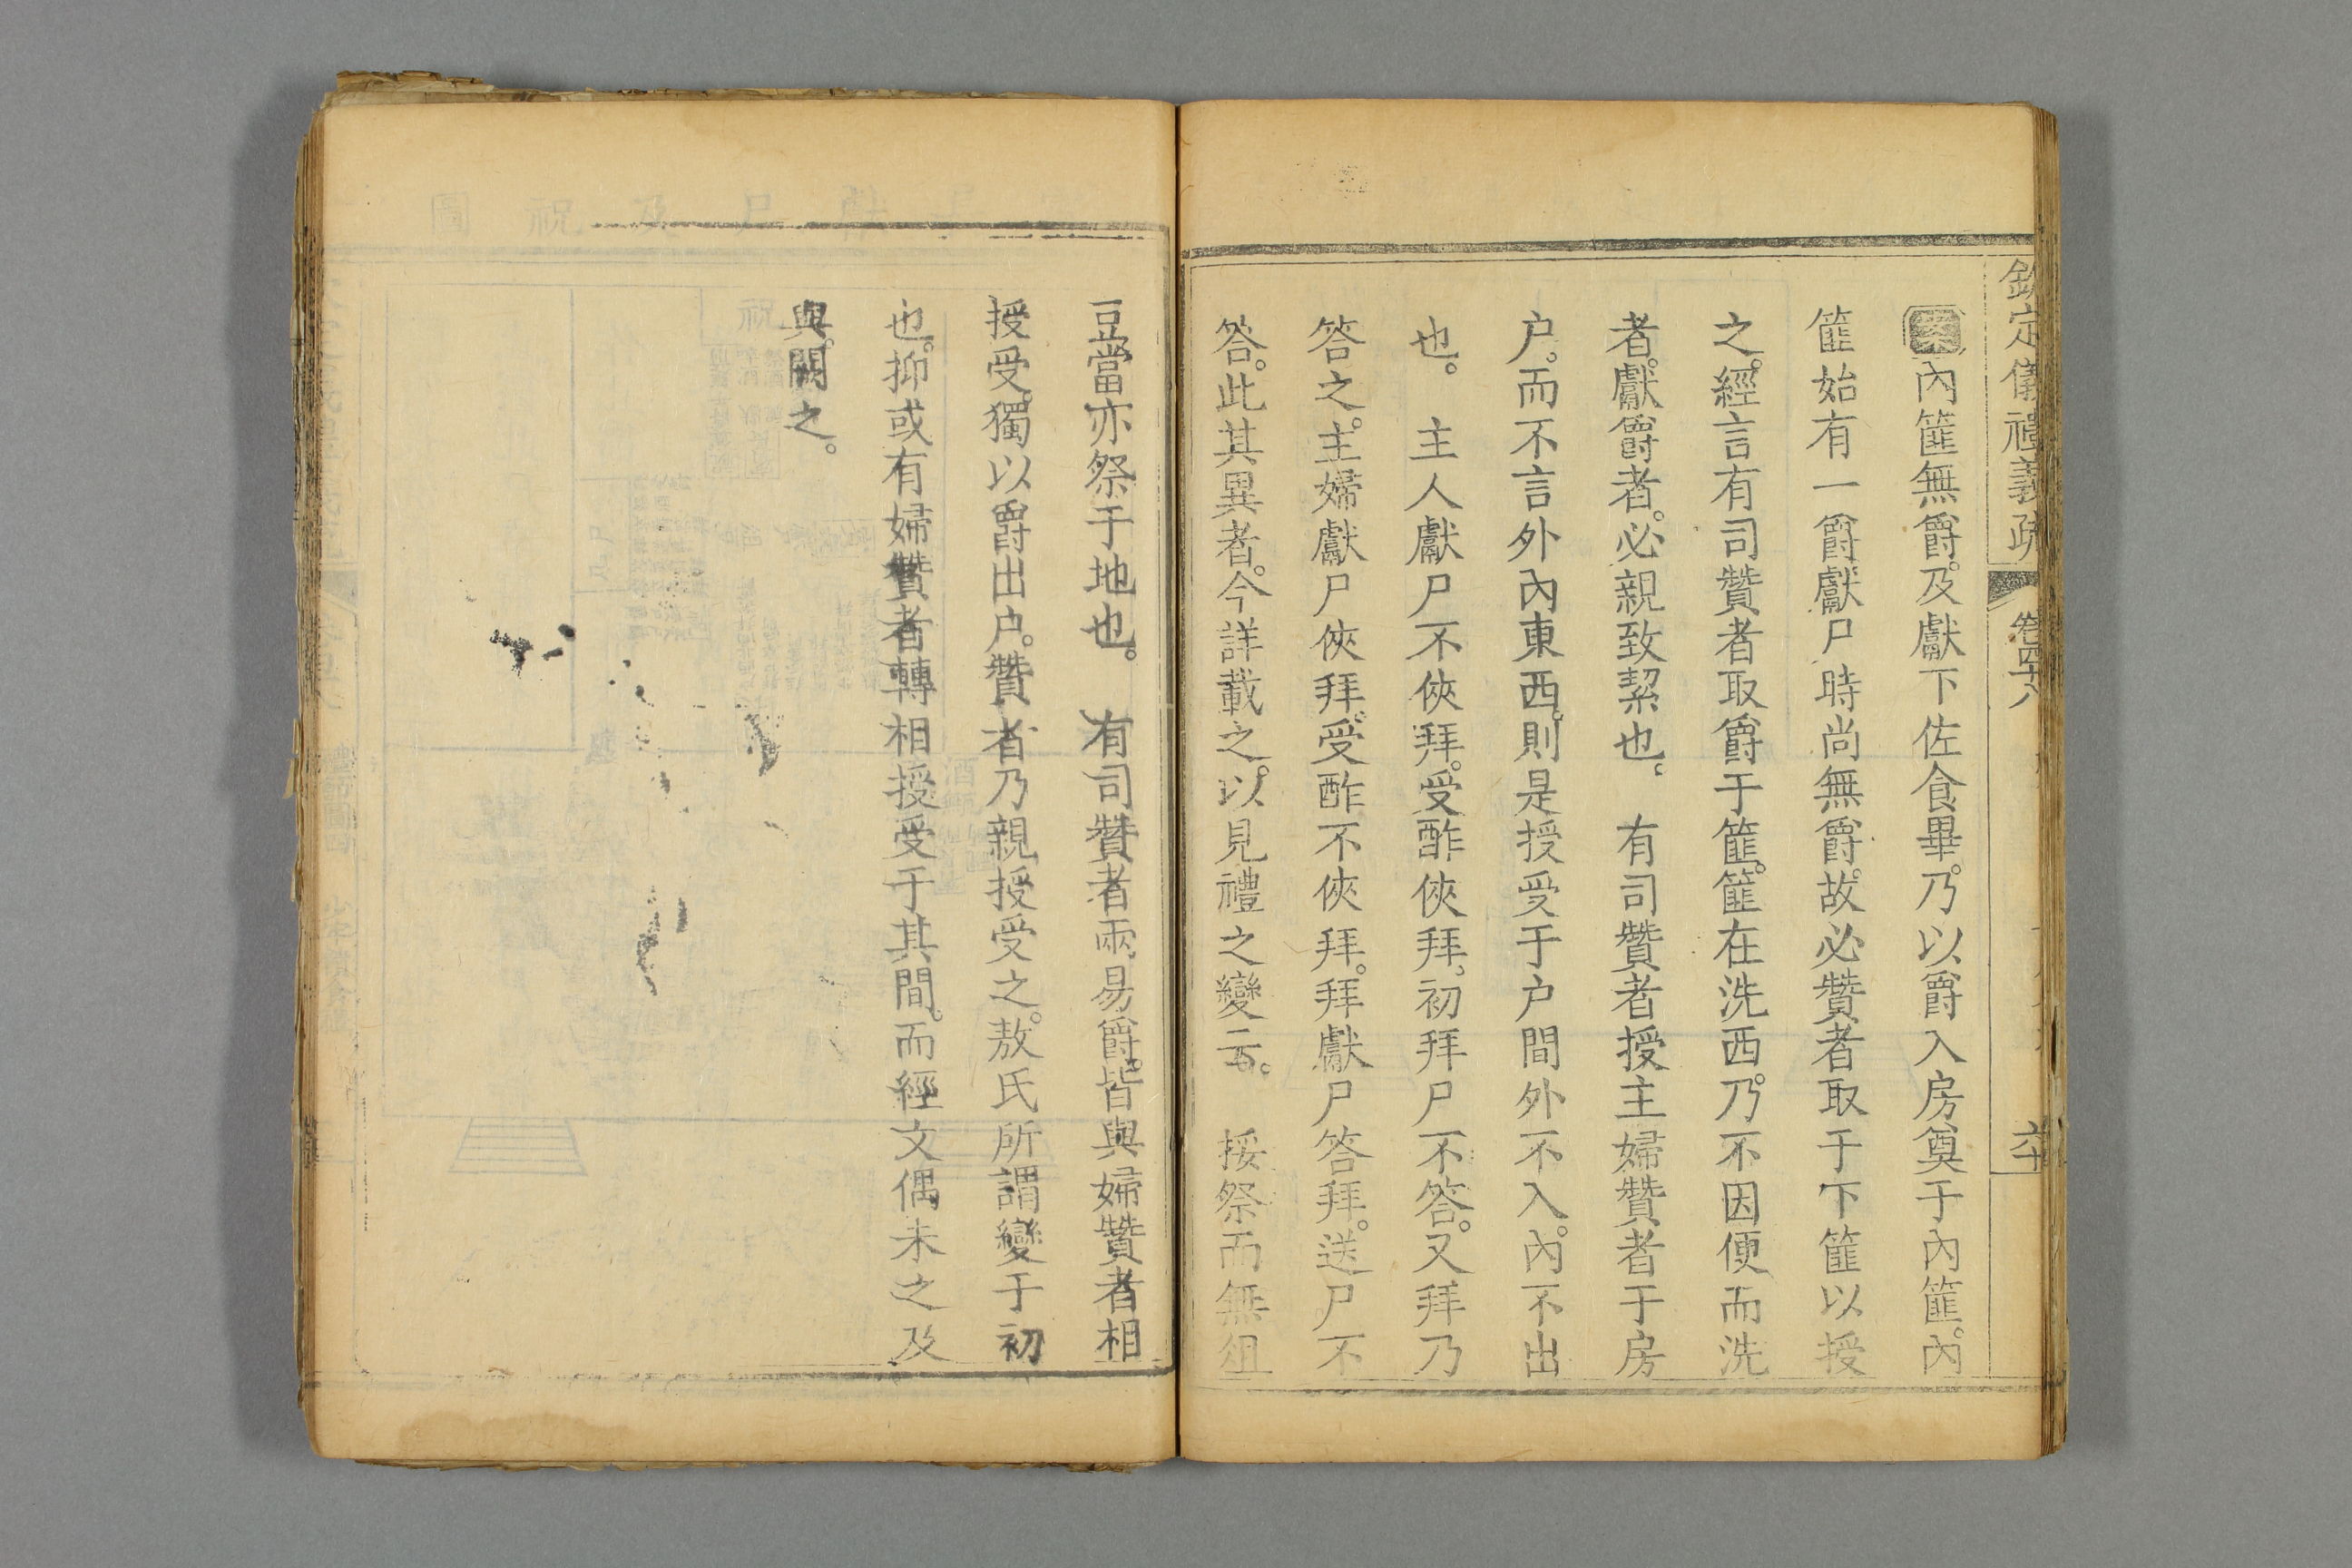 欽定儀禮義疏 卷四十八 六十
案內篚無爵。及獻下佐食畢。乃以爵入房奠于內篚。內
篚始有一爵獻尸時尚無爵。故必贊者取于下篚以授
之。經言有司贊者取爵于篚。篚在洗西。乃不因便而洗
者。獻爵者。必親致絜也。 有司贊者授主婦贊者于房
户。而不言外內東西。則是授受于户間外不入。內不出
也。 主人獻尸不俠拜。受酢俠拜。初拜尸不答。又拜乃
答之。主婦獻尸俠拜。受酢不俠拜。拜獻尸答拜。送尸不
答。此其異者。今詳載之。以見禮之變云。 挼祭而無俎
豆當亦祭于地也。 有司贊者兩易爵。皆與婦贊者相
授受。獨以爵出户。贊者乃親授受之。敖氏所謂變于初
也。抑或有婦贊者轉相授受于其間。而經文偶未之及
與。闕之。